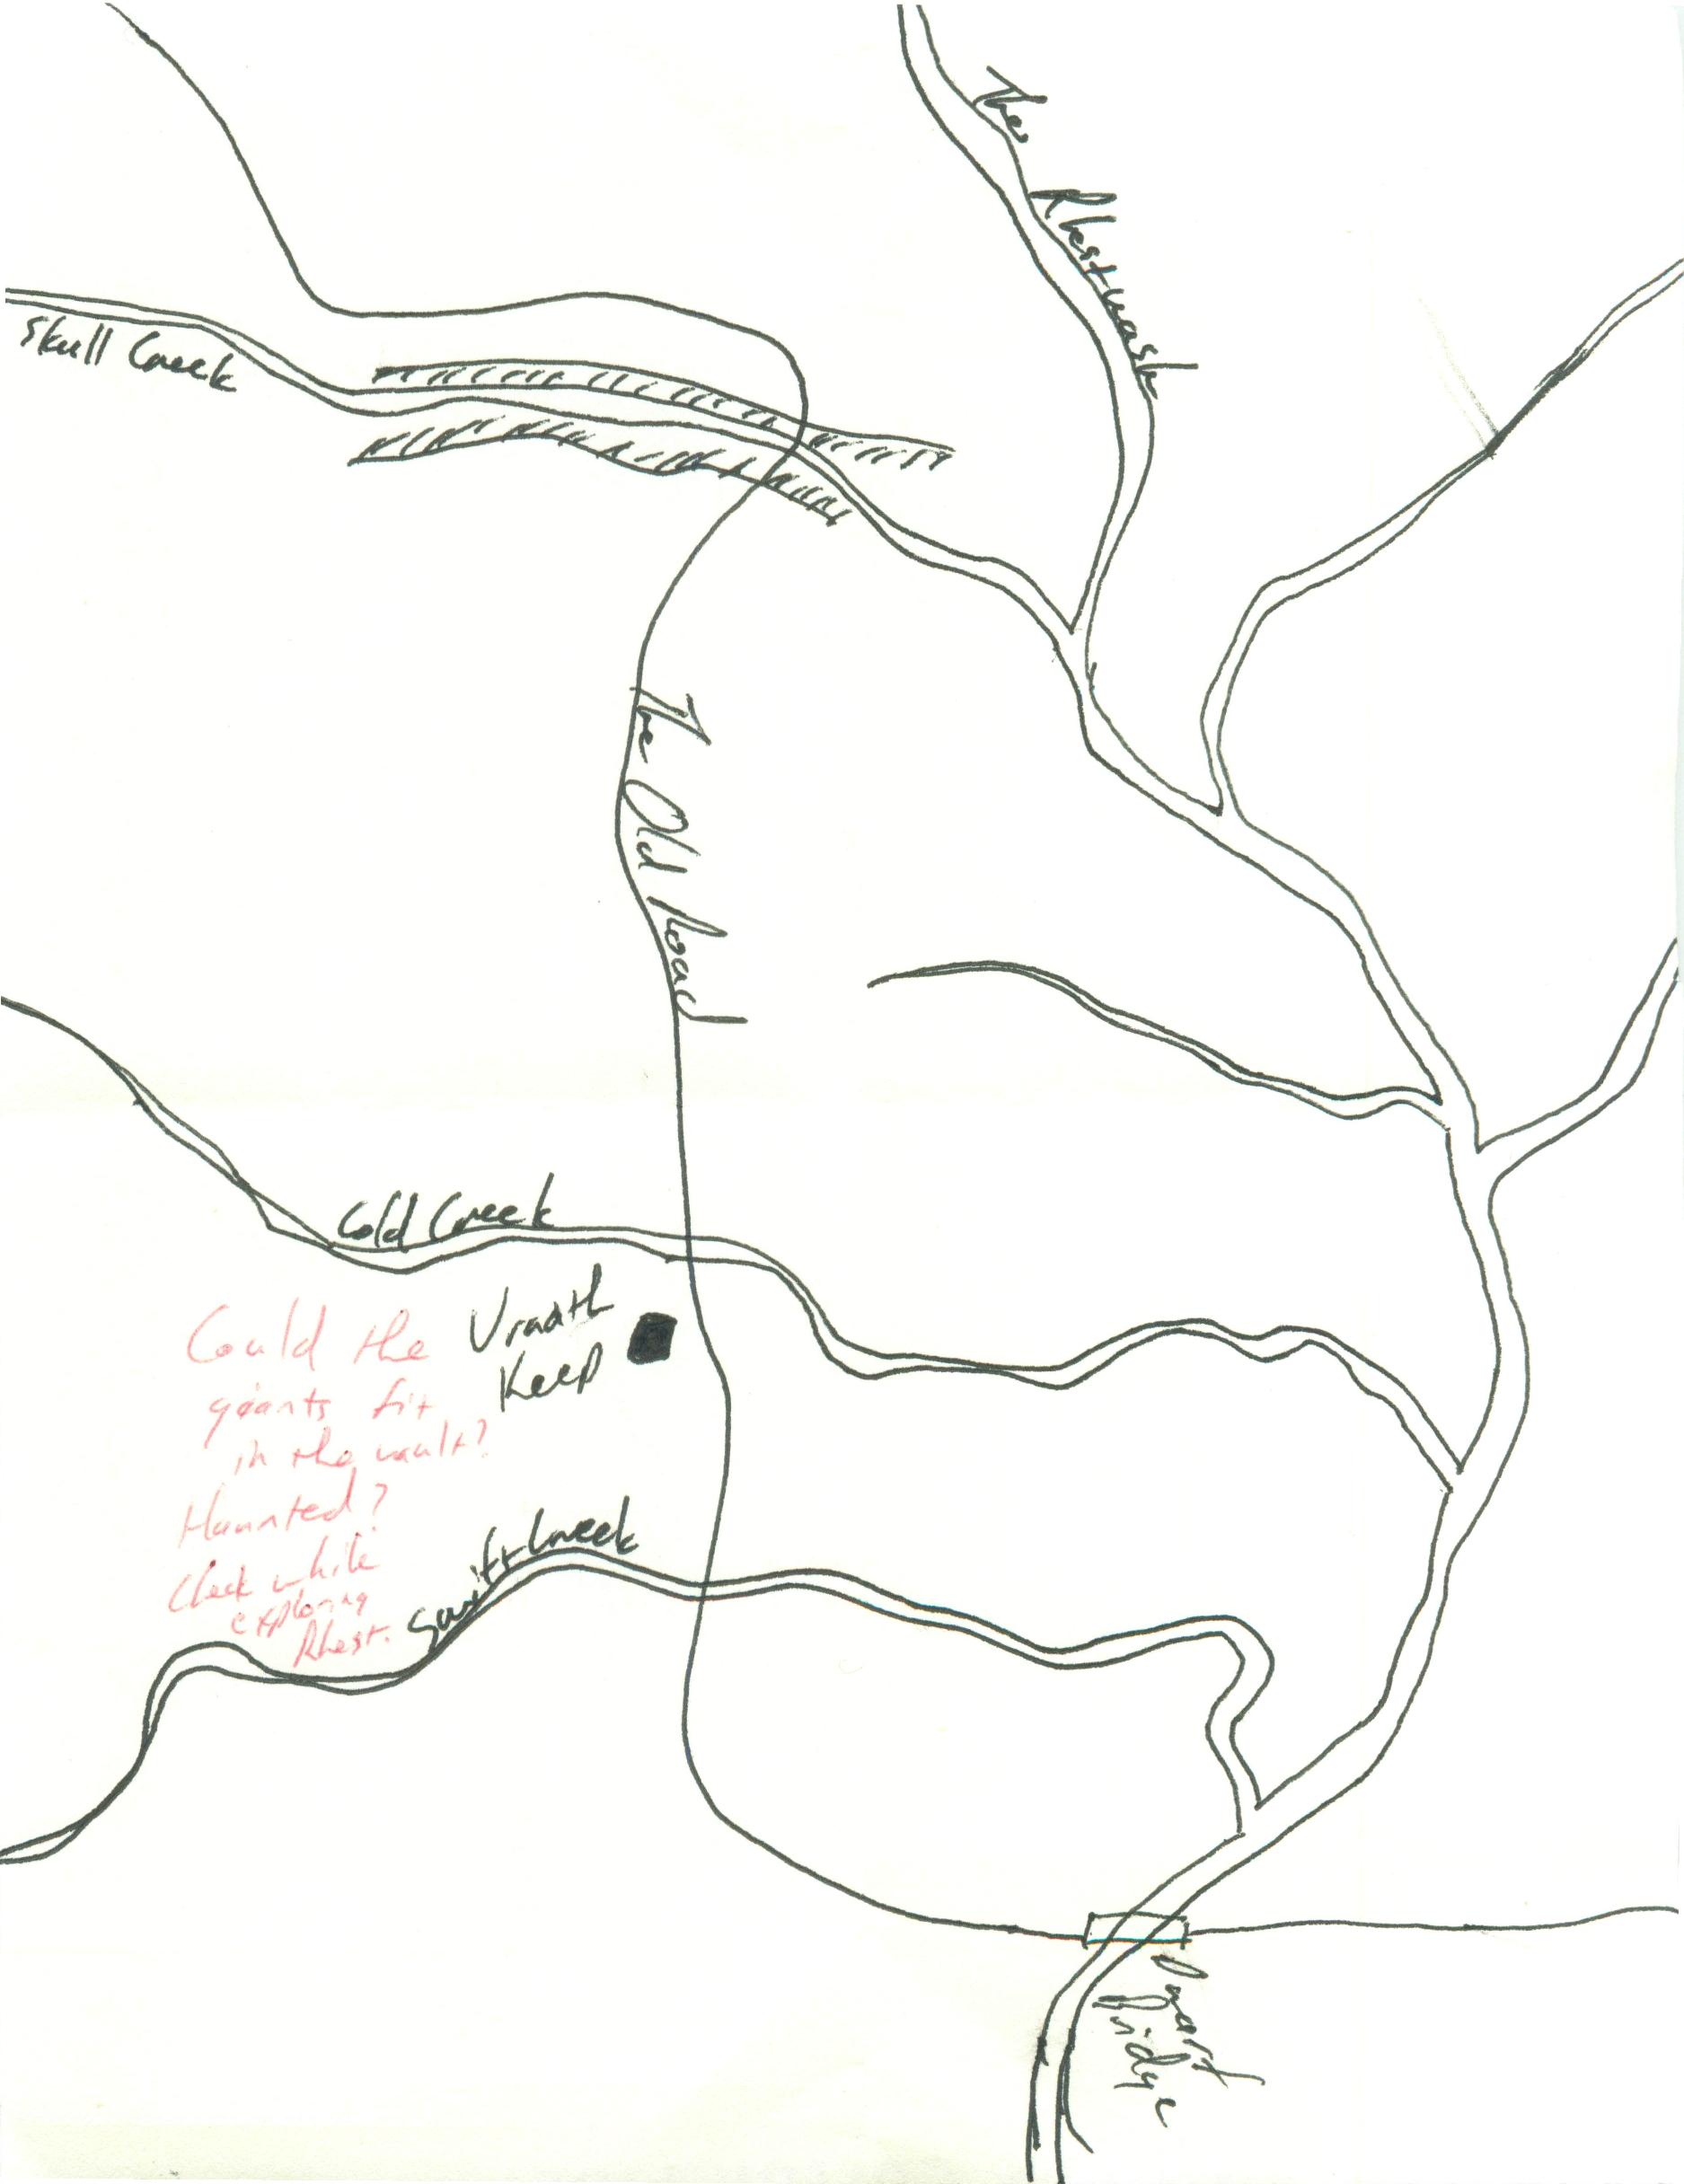 The
Rhestwash
Skull Creek
The Old Road
Cold Creek
Vraath
Keep
Could the
giants fit
in the vault?
Haunted?
Check while
exploring
Rhest.
Swift Creek
Bridge